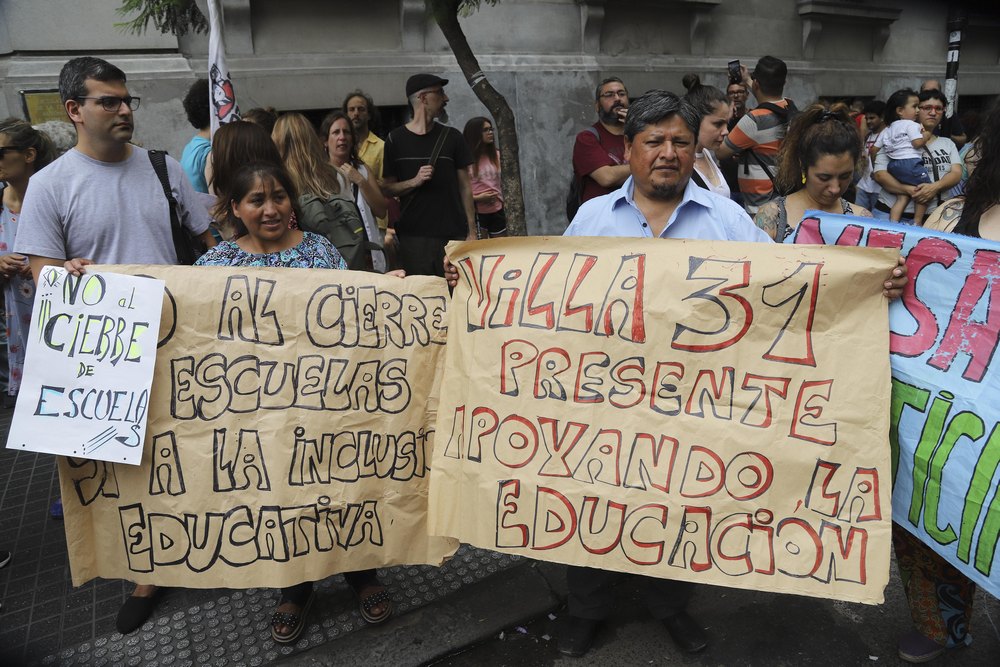 NO al
CIERRE
DE
ESCUELAS
AL CIERRE
ESCUELAS
SÍ A LA INCLUSIÓ
EDUCATIVA
VILLA 31
PRESENTE
APOYANDO LA
EDUCACIÓN
MESA